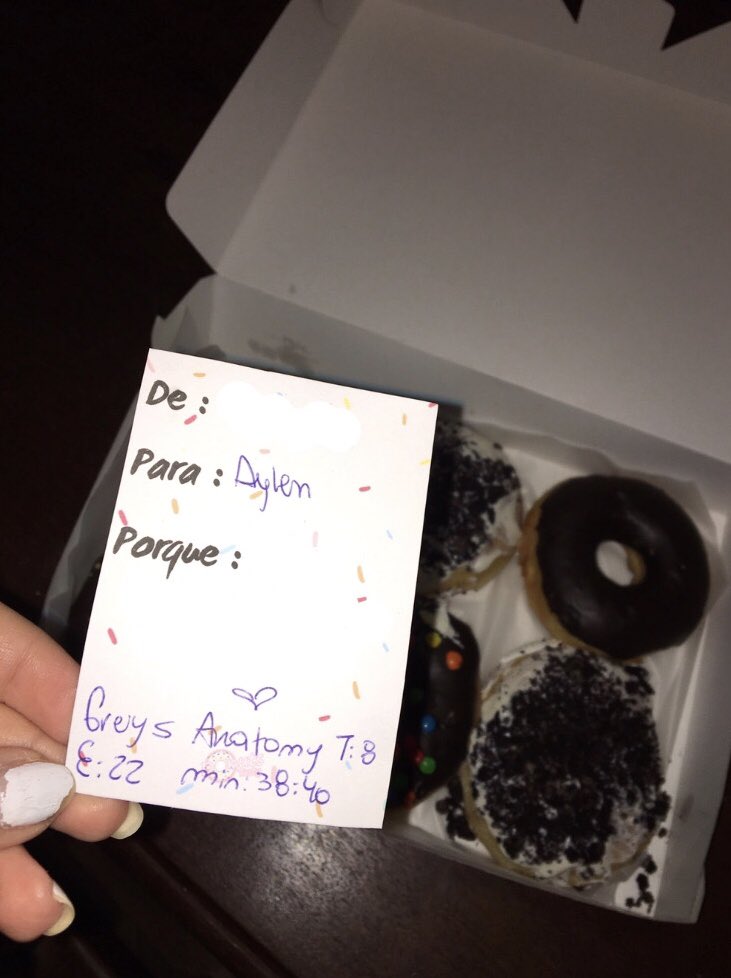 De:
Para: Dylen
Porque:
Greys Anatomy T:8
E:22 min:38:40